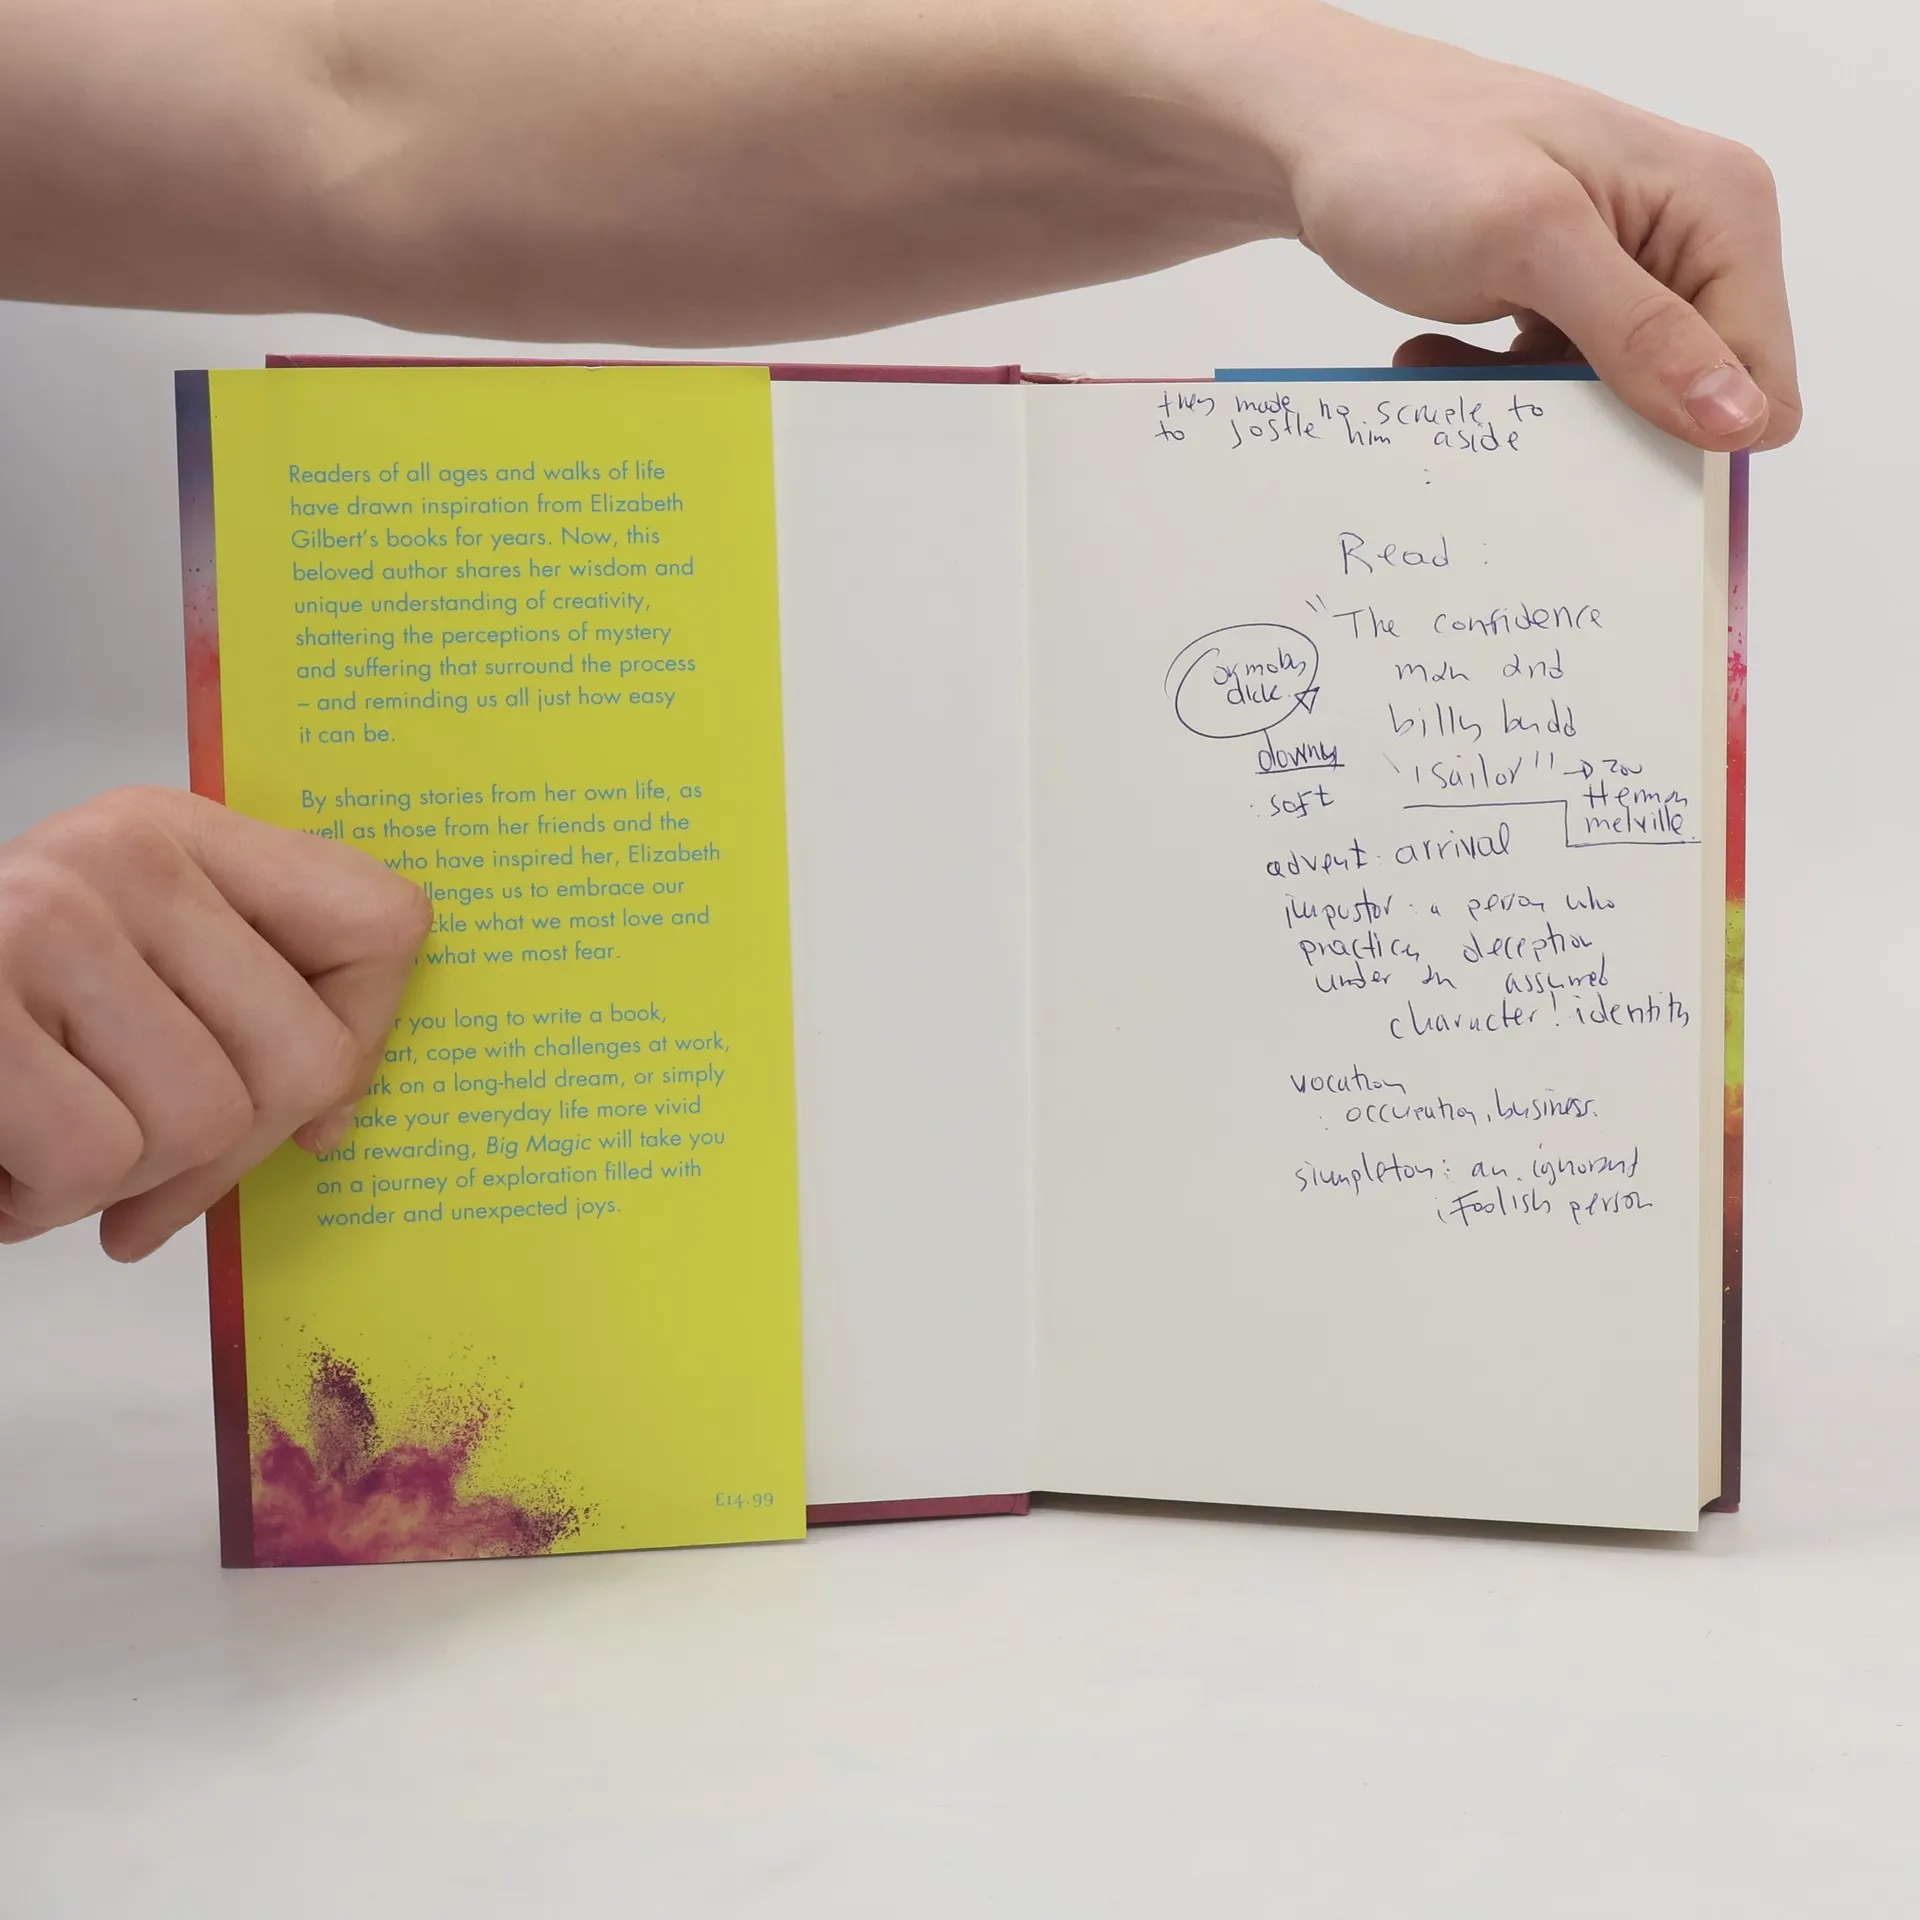 Readers of all ages and walks of life
have drawn inspiration from Elizabeth
Gilbert's books for years. Now, this
beloved author shares her wisdom and
unique understanding of creativity,
shattering the perceptions of mystery
and suffering that surround the process
– and reminding us all just how easy
it can be.
By sharing stories from her own life, as
well as those from her friends and the
who have inspired her, Elizabeth
llenges us to embrace our
ckle what we most love and
what we most fear.
r you long to write a book,
art, cope with challenges at work,
rk on a long-held dream, or simply
make your everyday life more vivid
and rewarding, Big Magic will take you
on a journey of exploration filled with
wonder and unexpected joys.
£14.99
they made no scruple to
to jostle him aside
:
Read :
"The confidence
man and
billy budd
sailor" →
Herman
melville.
or moby
dick.
downy
: soft
advent : arrival
impostor : a person who
practices deception
under an assumed
character! identity
vocation
: occupation, business.
simpleton : an ignorant
foolish person